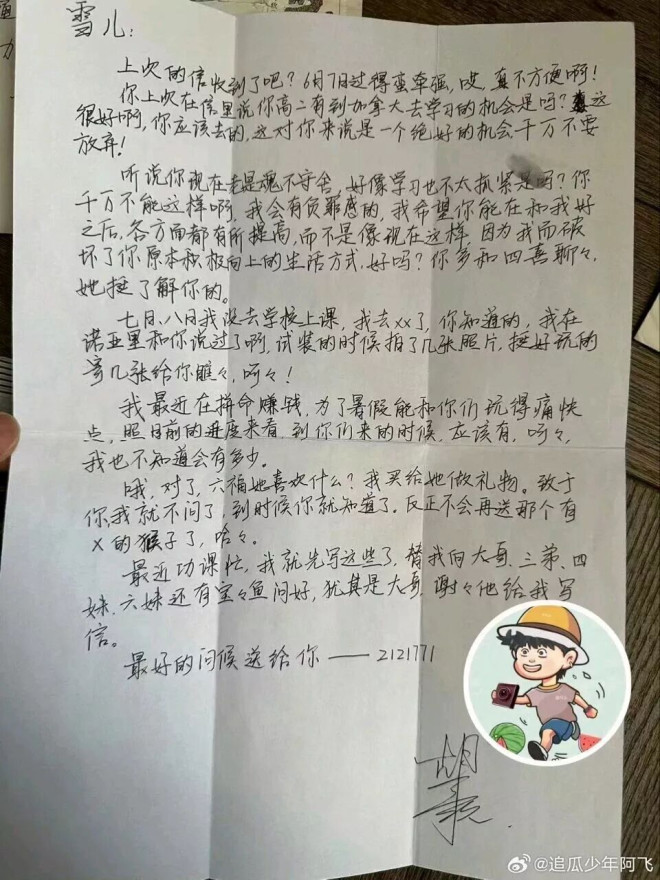 雪儿：
上次的信收到了吧？6月7日过得蛮牵强，哎，真不方便啊！
你上次在信里说你高二有到加拿大去学习的机会是吗？这
很好啊，你应该去的，这对你来说是一个绝好的机会千万不要
放弃！
听说你现在老是魂不守舍，好像学习也不太抓紧是吗？你
千万不能这样啊，我会有负罪感的，我希望你能在和我好
之后，各方面都有所提高，而不是像现在这样 因为我而破
坏了你原本积极向上的生活方式，好吗？你多和四喜聊々，
她挺了解你的。
七日、八日我没去学校上课，我去xx了，你知道的，我在
诺亚里和你说过了啊，试装的时候拍了几张照片，挺好玩的
寄几张给你瞧々，呵々！
我最近在拼命赚钱，为了暑假能和你们玩得痛快
点，照目前的进度来看，到你们来的时候，应该有，呵々，
我也不知道会有多少。
哦，对了，六福她喜欢什么？我买给她做礼物。致于
你，我就不问了，到时候你就知道了。反正不会再送那个有
x的猴子了，哈々。
最近功课忙，我就先写这些了，替我向大哥、三弟、四
妹、六妹还有宝々鱼问好，犹其是大哥，谢々他给我写
信。
最好的问候送给你——2121771
胡
追瓜少年阿飞